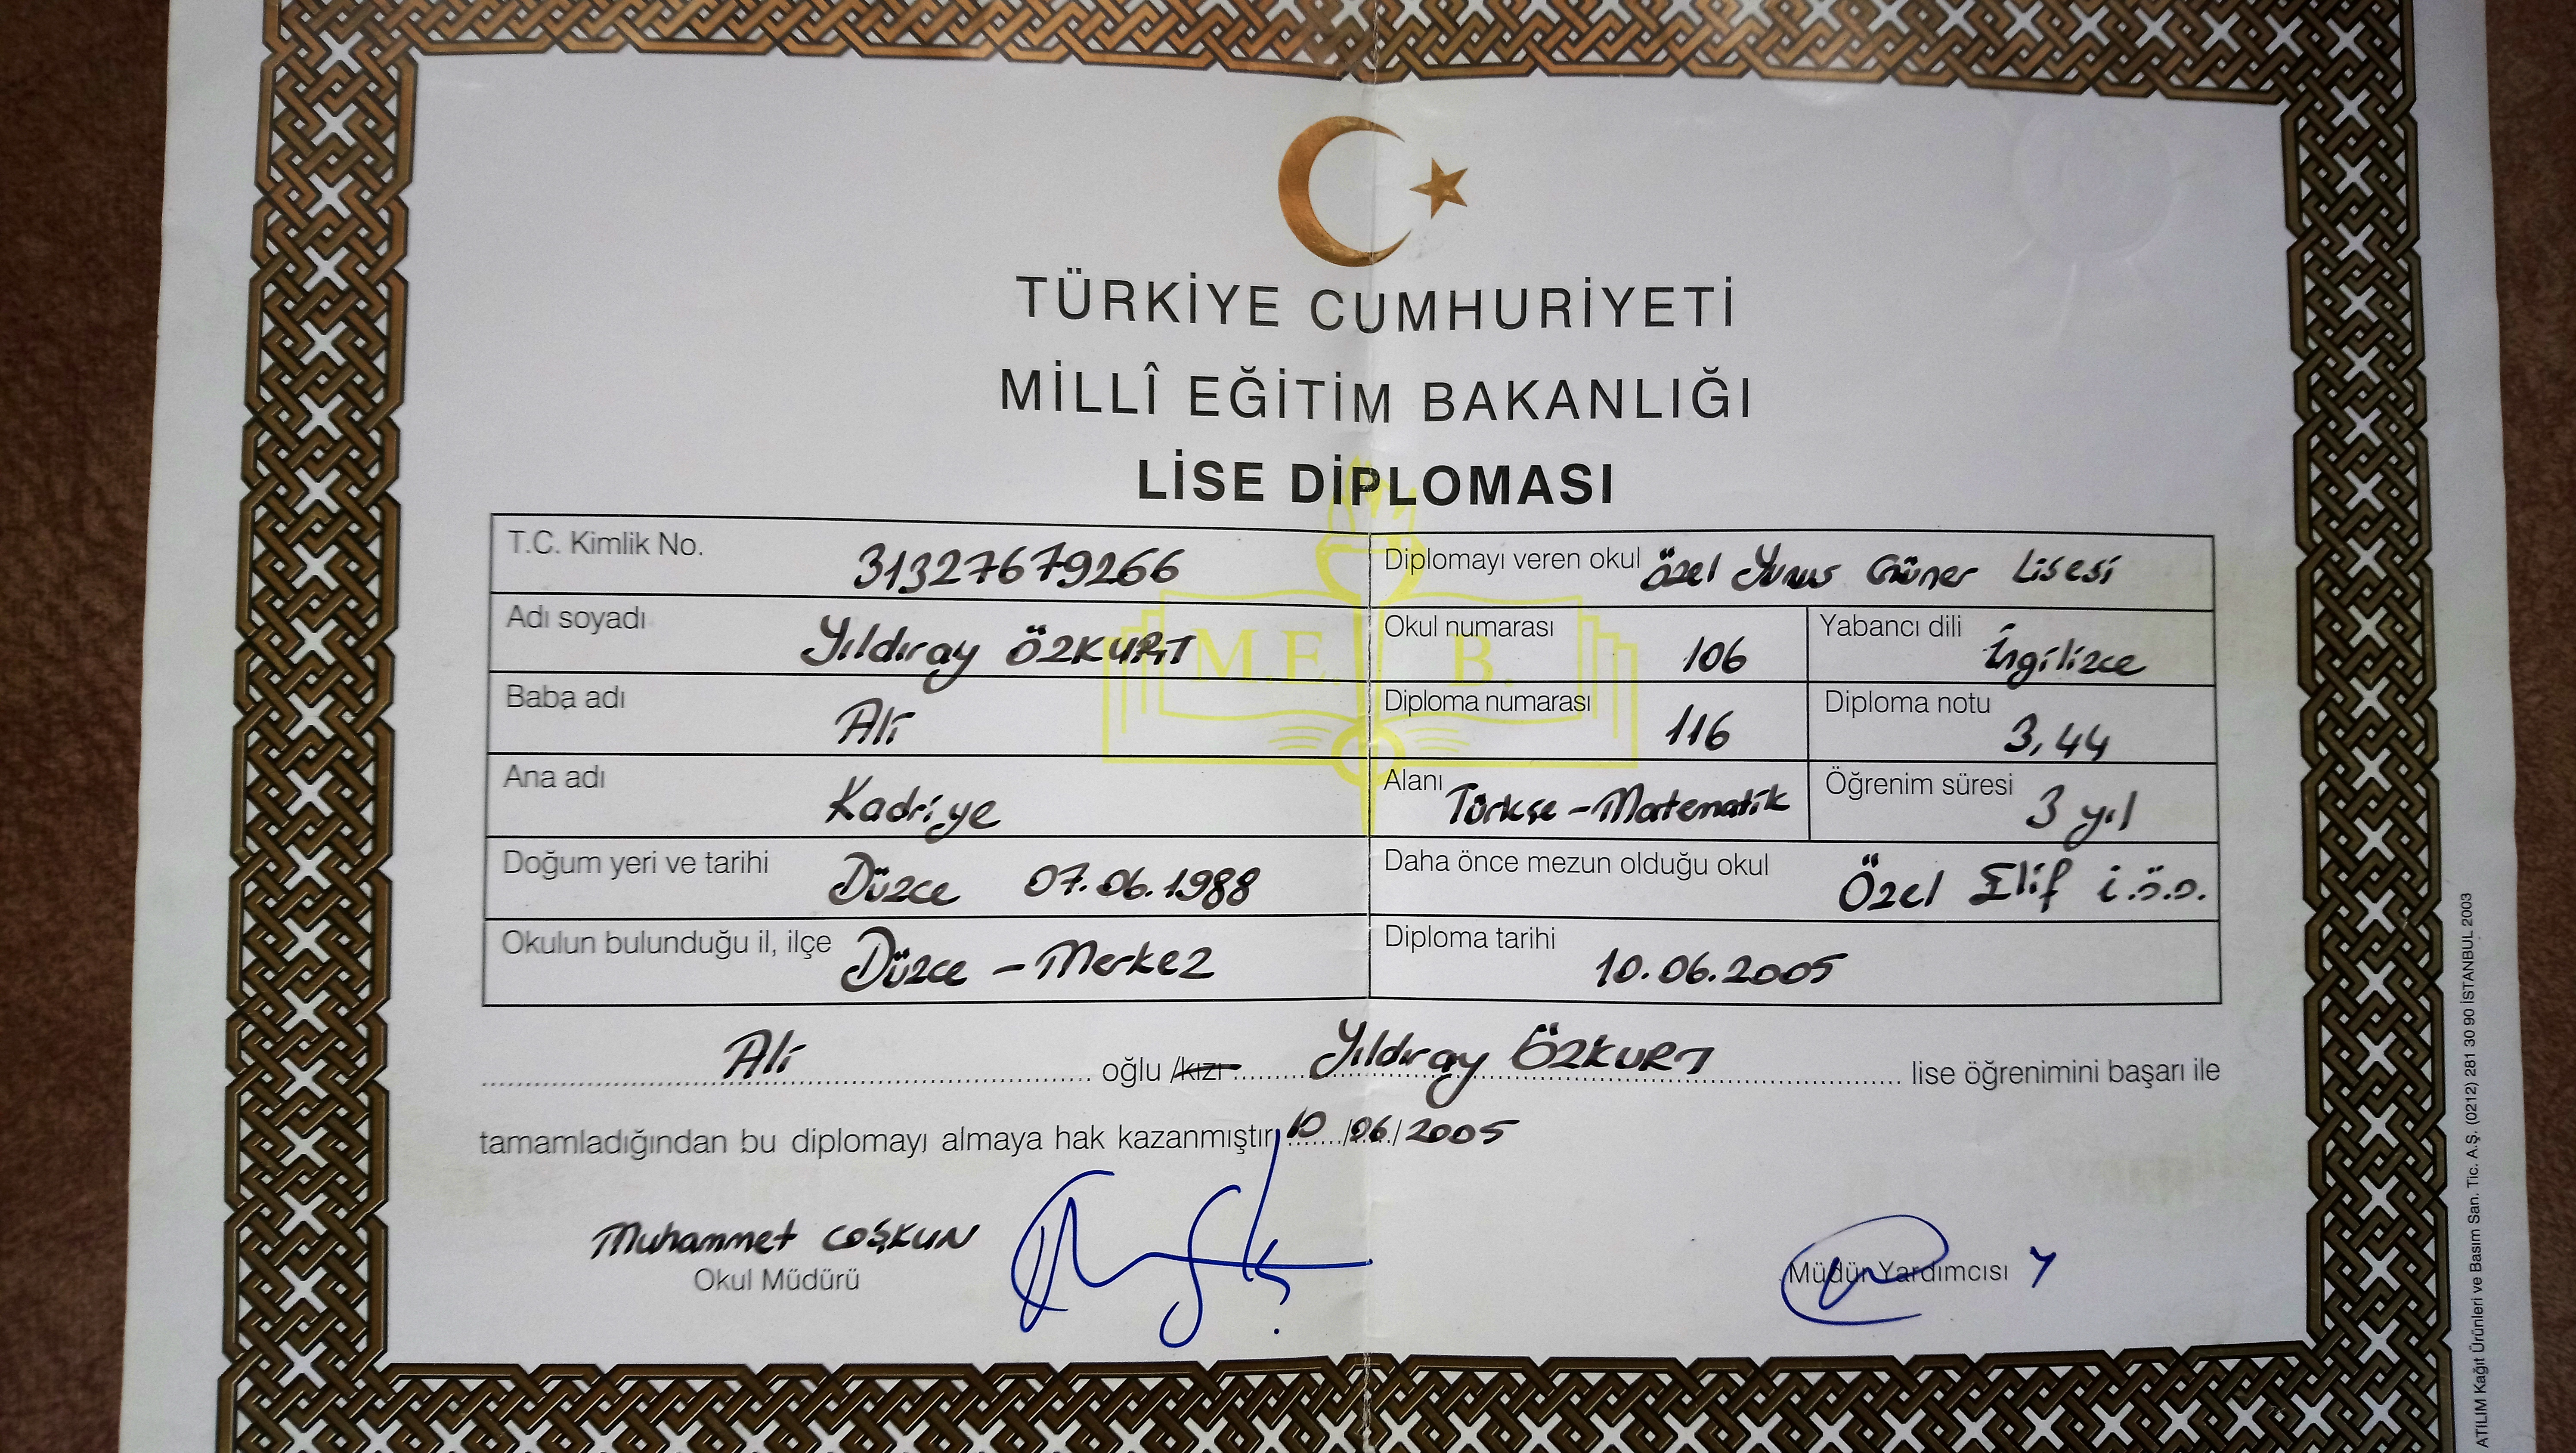 TÜRKİYE CUMHURİYETİ
MİLLÎ EĞİTİM BAKANLIĞI
LİSE DİPLOMASI
T.C. Kimlik No. 31327679266
Diplomayı veren okul Özel Yunus Güner Lisesi
Adı soyadı Yıldıray ÖZKURT
Okul numarası 106
Yabancı dili İngilizce
M.E. B.
Baba adı Ali
Diploma numarası 116
Diploma notu 3,44
Ana adı Kadriye
Alanı Türkçe - Matematik
Öğrenim süresi 3 yıl
Doğum yeri ve tarihi Düzce 07.06.1988
Daha önce mezun olduğu okul Özel Elif İ.Ö.O.
Okulun bulunduğu il, ilçe Düzce - Merkez
Diploma tarihi 10.06.2005
Ali oğlu /kızı Yıldıray ÖZKURT lise öğrenimini başarı ile
tamamladığından bu diplomayı almaya hak kazanmıştır. 10/06/2005
Muhammet COŞKUN
Okul Müdürü
Müdür Yardımcısı
ATILIM Kağıt Ürünleri ve Basım San. Tic. A.Ş. (0212) 281 30 90 İSTANBUL 2003